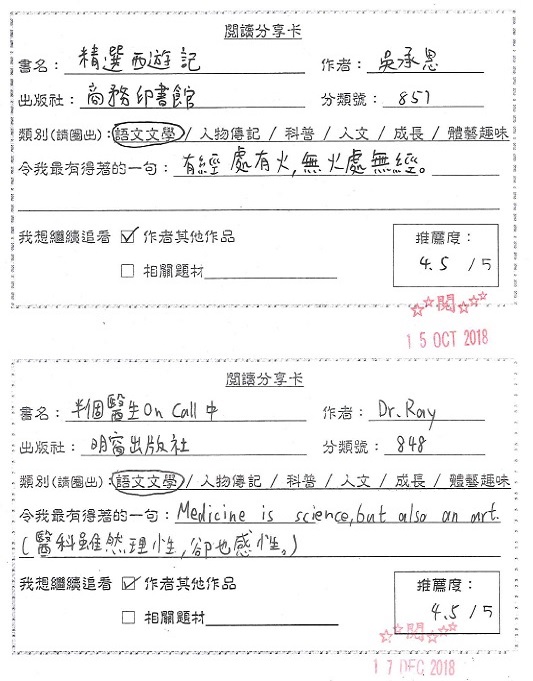 閱讀分享卡
書名：精選西遊記 作者：吳承恩
出版社：商務印書館 分類號：857
類別(請圈出)：語文文學 / 人物傳記 / 科普 / 人文 / 成長 / 體藝趣味
令我最有得著的一句：有經處有火，無火處無經。
我想繼續追看 ☑ 作者其他作品 推薦度：
☐ 相關題材 4.5 / 5
☆☆閱☆☆☆
15 OCT 2018
閱讀分享卡
書名：半個醫生On Call中 作者：Dr. Ray
出版社：明窗出版社 分類號：848
類別(請圈出)：語文文學 / 人物傳記 / 科普 / 人文 / 成長 / 體藝趣味
令我最有得著的一句：Medicine is science, but also an art.
(醫科雖然理性，卻也感性。)
我想繼續追看 ☑ 作者其他作品 推薦度：
☐ 相關題材 4.5 / 5
☆☆閱☆☆☆
17 DEC 2018